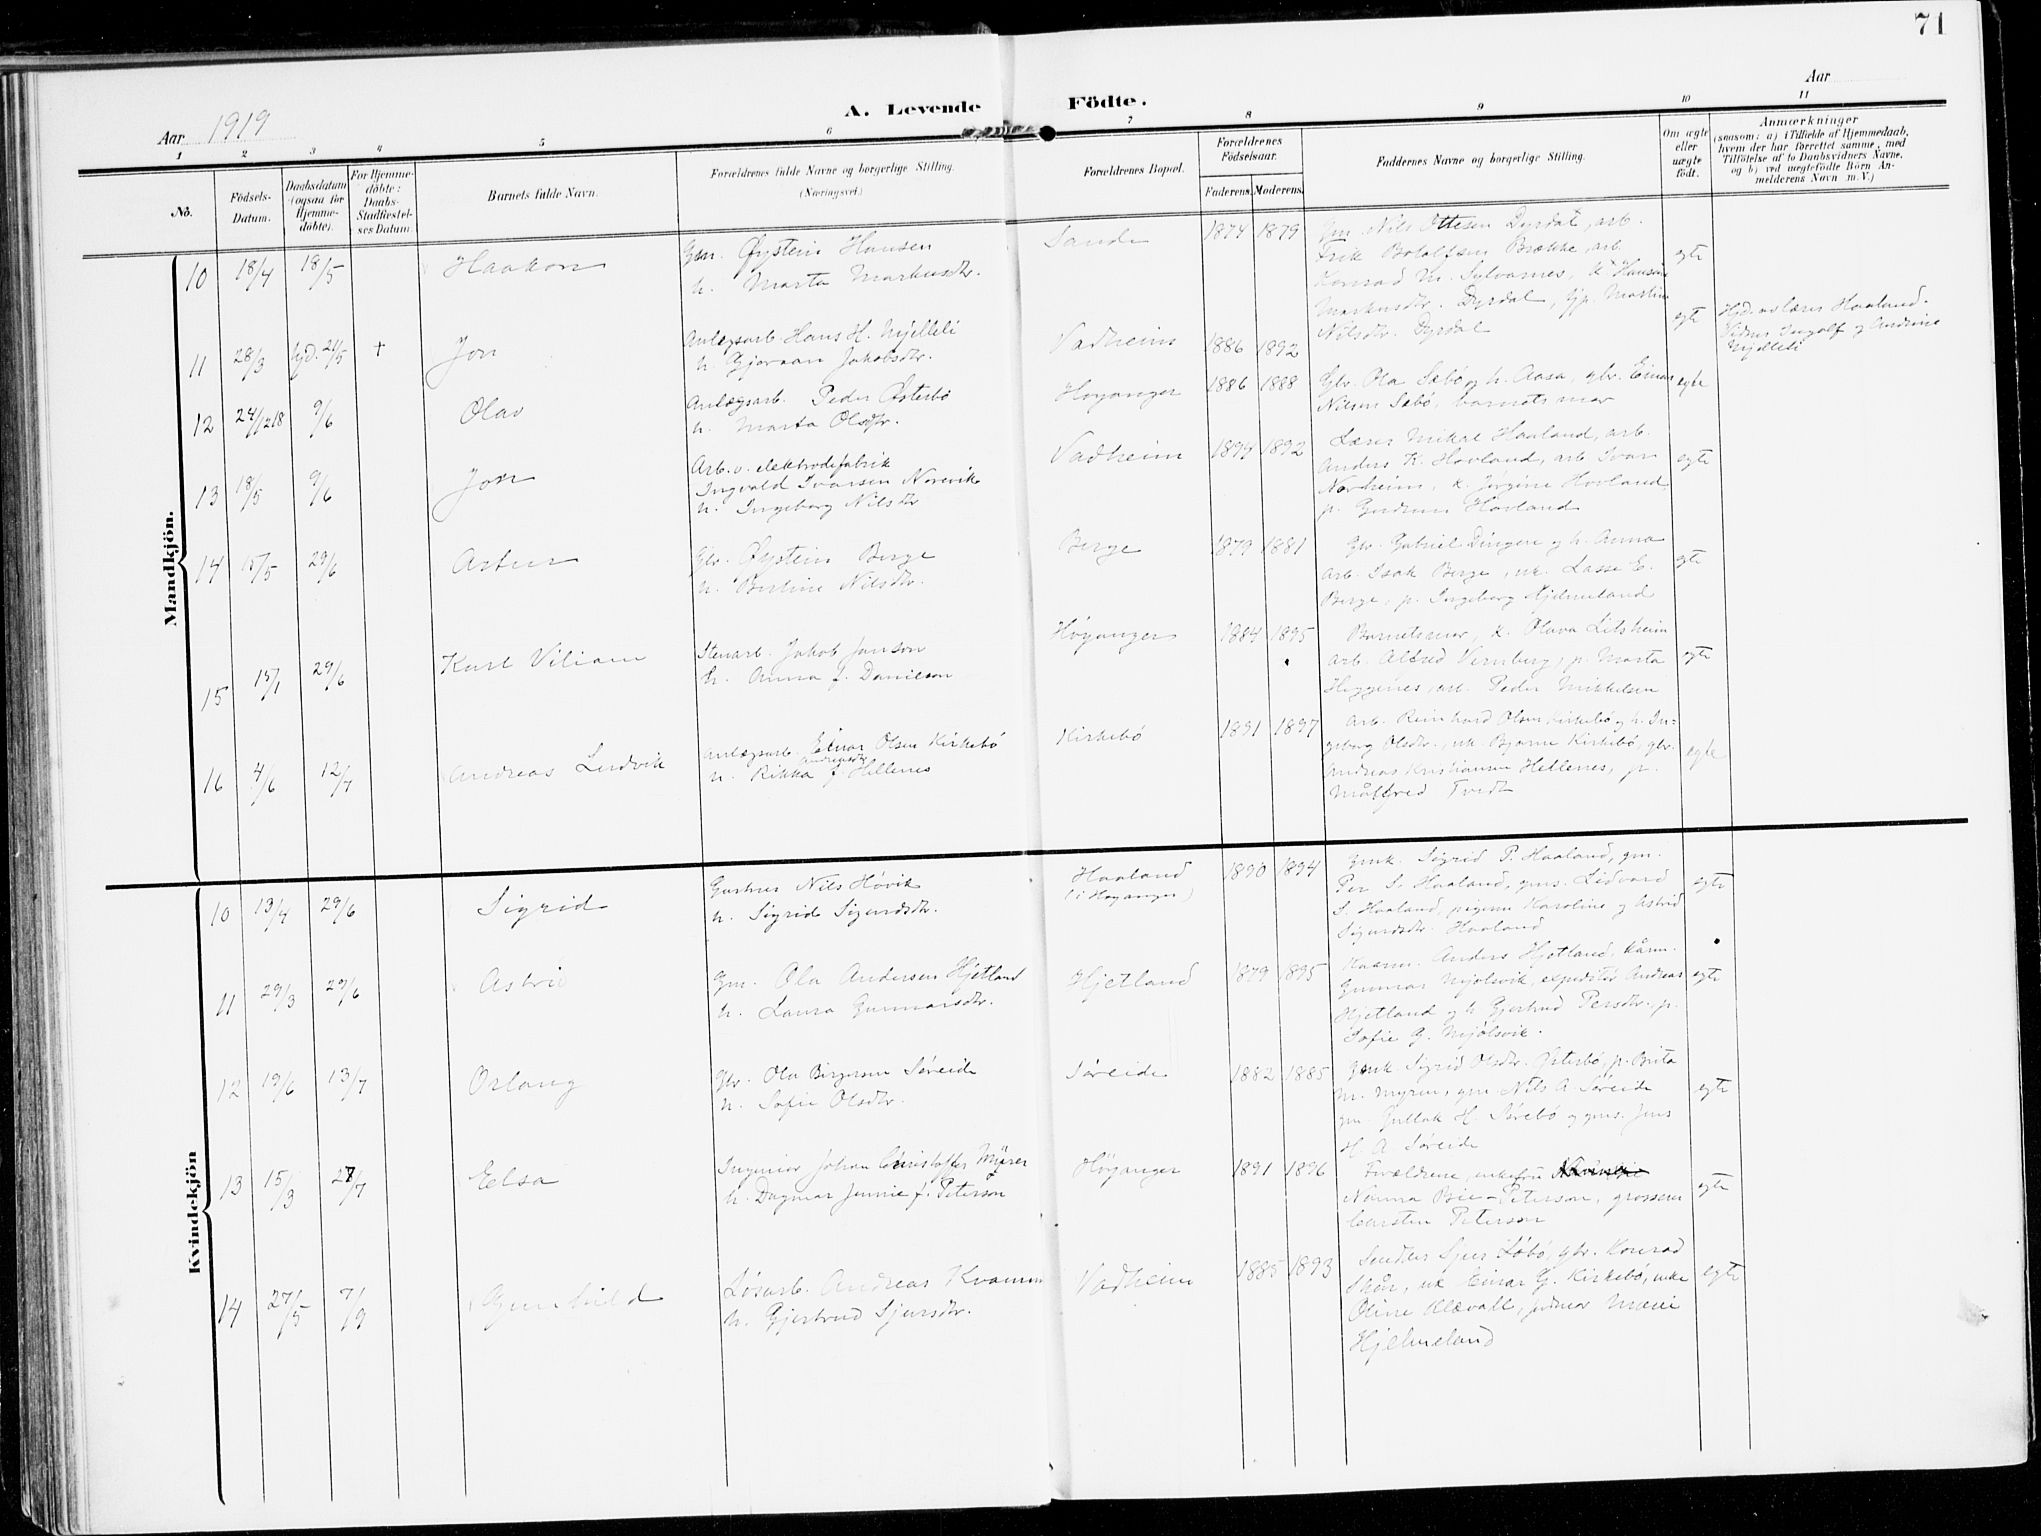 71
Aar 1919
A. Levende Födte.
Aar
1 2 3 4 5 6 7 8 9 10 11
No.
Födsels-Datum.
Daabsdatum (ogsaa for Hjemmedöbte).
For Hjemmedöbte: Daabs-Stadfæstelses Datum.
Barnets fulde Navn.
Forældrenes fulde Navne og borgerlige Stilling. (Næringsvei.)
Forældrenes Bopæl.
Forældrenes Födselsaar.
Faderens. Moderens.
Faddernes Navne og borgerlige Stilling.
Om ægte eller uægte födt.
Anmærkninger
(saasom: a) i Tilfælde af Hjemmedaab, hvem der har forrettet samme, med Tilföielse af to Daabsvidners Navne, og b) ved uægtefödte Börn Anmelderens Navn m. V.)
Mandkjön.
10 18/4 18/5 Haakon
Gm. Øystein Hansen
h. Marta Markusdtr.
Sande 1874 1879
Gm. Nils Ottesen Dyrdal, arb.
Erik Botolfsen Brække, arb.
Konrad M. Sylvarnes, k. Hansine
Markusdtr. Dyrdal, pp. Martine
Nilsdtr. Dyrdal
egte
11 28/3 hjd. 21/5 + Jon
Anlægsarb. Hans H. Mjelleli
h. Gjoraan Jakobsdtr.
Vadheim 1886 1892
egte
Hd. av lærer Haaland.
Vidner Ingolf og Andrine
Mjelleli
12 24/12 18 9/6 Olav
Anlægsarb. Peder Østerbø
h. Marta Olsdtr.
Høyanger 1886 1888
Gbr. Ola Sæbø og h. Aasa, gbr. Einar
Nilsen Sæbø, barnets mor
egte
13 18/5 9/6 Jon
Arb. v. elektrodefabrik
Ingvald Ivarsen Norevik
h. Ingeborg Nilsdtr
Vadheim 1894 1892
Lærer Mikal Haaland, arb.
Anders K. Hovland, arb. Ivar
Norheim, k. Jørgine Hovland,
p. Gudrun Hovland
egte
14 15/5 29/6 Artur
Gbr. Øystein Berge
h. Bertine Nilsdtr.
Berge 1879 1881
Gbr. Gabriel Dingen og h. Anna
arb. Isak Berge, uk. Lasse E.
Berge, p. Ingeborg Hjelmeland
egte
15 15/1 29/6 Karl Viliam
Stenarb. Jakob Janson
h. Anna f. Danielson
Høyanger 1884 1895
Barnets mor, k. Olava Litsheim
arb. Alfred Vernberg, p. Marta
Heggenes, arb. Peder Mikkelsen
egte
16 4/6 12/7 Andreas Ludvik
Anlægsarb. Einar Olsen Kirkebø
h. Rikka Andreasdtr f. Hellenes
Kirkebø 1891 1897
Arb. Reinhard Olsen Kirkebø og h. In-
geborg Olsdtr., uk. Bjarne Kirkebø, gbr.
Andreas Kristiansen Hellenes, p.
Målfred Tvedt
egte
Kvindekjön
10 13/4 29/6 Sigrid
Nils Høvik
h. Sigrid Sigurdsdtr.
Haaland
(i Høyanger)
1890 1894
Gmk. Sigrid P. Haaland, gm.
Per S. Haaland, gms. Lidvard
S. Haaland, pigerne Karoline og Astrid
Sigurdsdtr. Haaland
egte
11 29/3 29/6 Astrid
Gm. Ola Andersen Hjetland
h. Laura Gunnarsdtr.
Hjetland 1879 1895
Kaarm. Anders Hjetland, kårm.
Gunnar Mjølsvik, expeditør Andreas
Hjetland og h Gjertrud Persdtr., p.
Sofie G. Mjølsvik.
egte
12 19/6 13/7 Oslaug
Gbr. Ola Birgersen Søreide
h. Sofie Olsdtr.
Søreide 1882 1885
Gmk. Sigrid Olsdtr. Østerbø, p. Brita
M. Myren, gm Nils A Søreide
gm. Gullak H. Sørebø og gms. Jens
H. A. Søreide
egte
13 15/3 27/7 Elsa
Ingeniør Johan Christoffer Myrer
h. Dagmar Jennie f. Peterson
Høyanger 1891 1896
Forældrene, enkefru
Nanna Bie-Peterson, grosserer
Carsten Peterson
egte
14 27/5 7/9 Gunhild
Løsarb. Andreas Kvamm
h. Gjertrud Sjursdtr.
Vadheim 1885 1893
Snedker SjurLøbø, gbr. Konrad
Skår, uk Einar G. Kirkebø, enke
Oline Klævall, jordmor Marie
Hjelmeland
egte